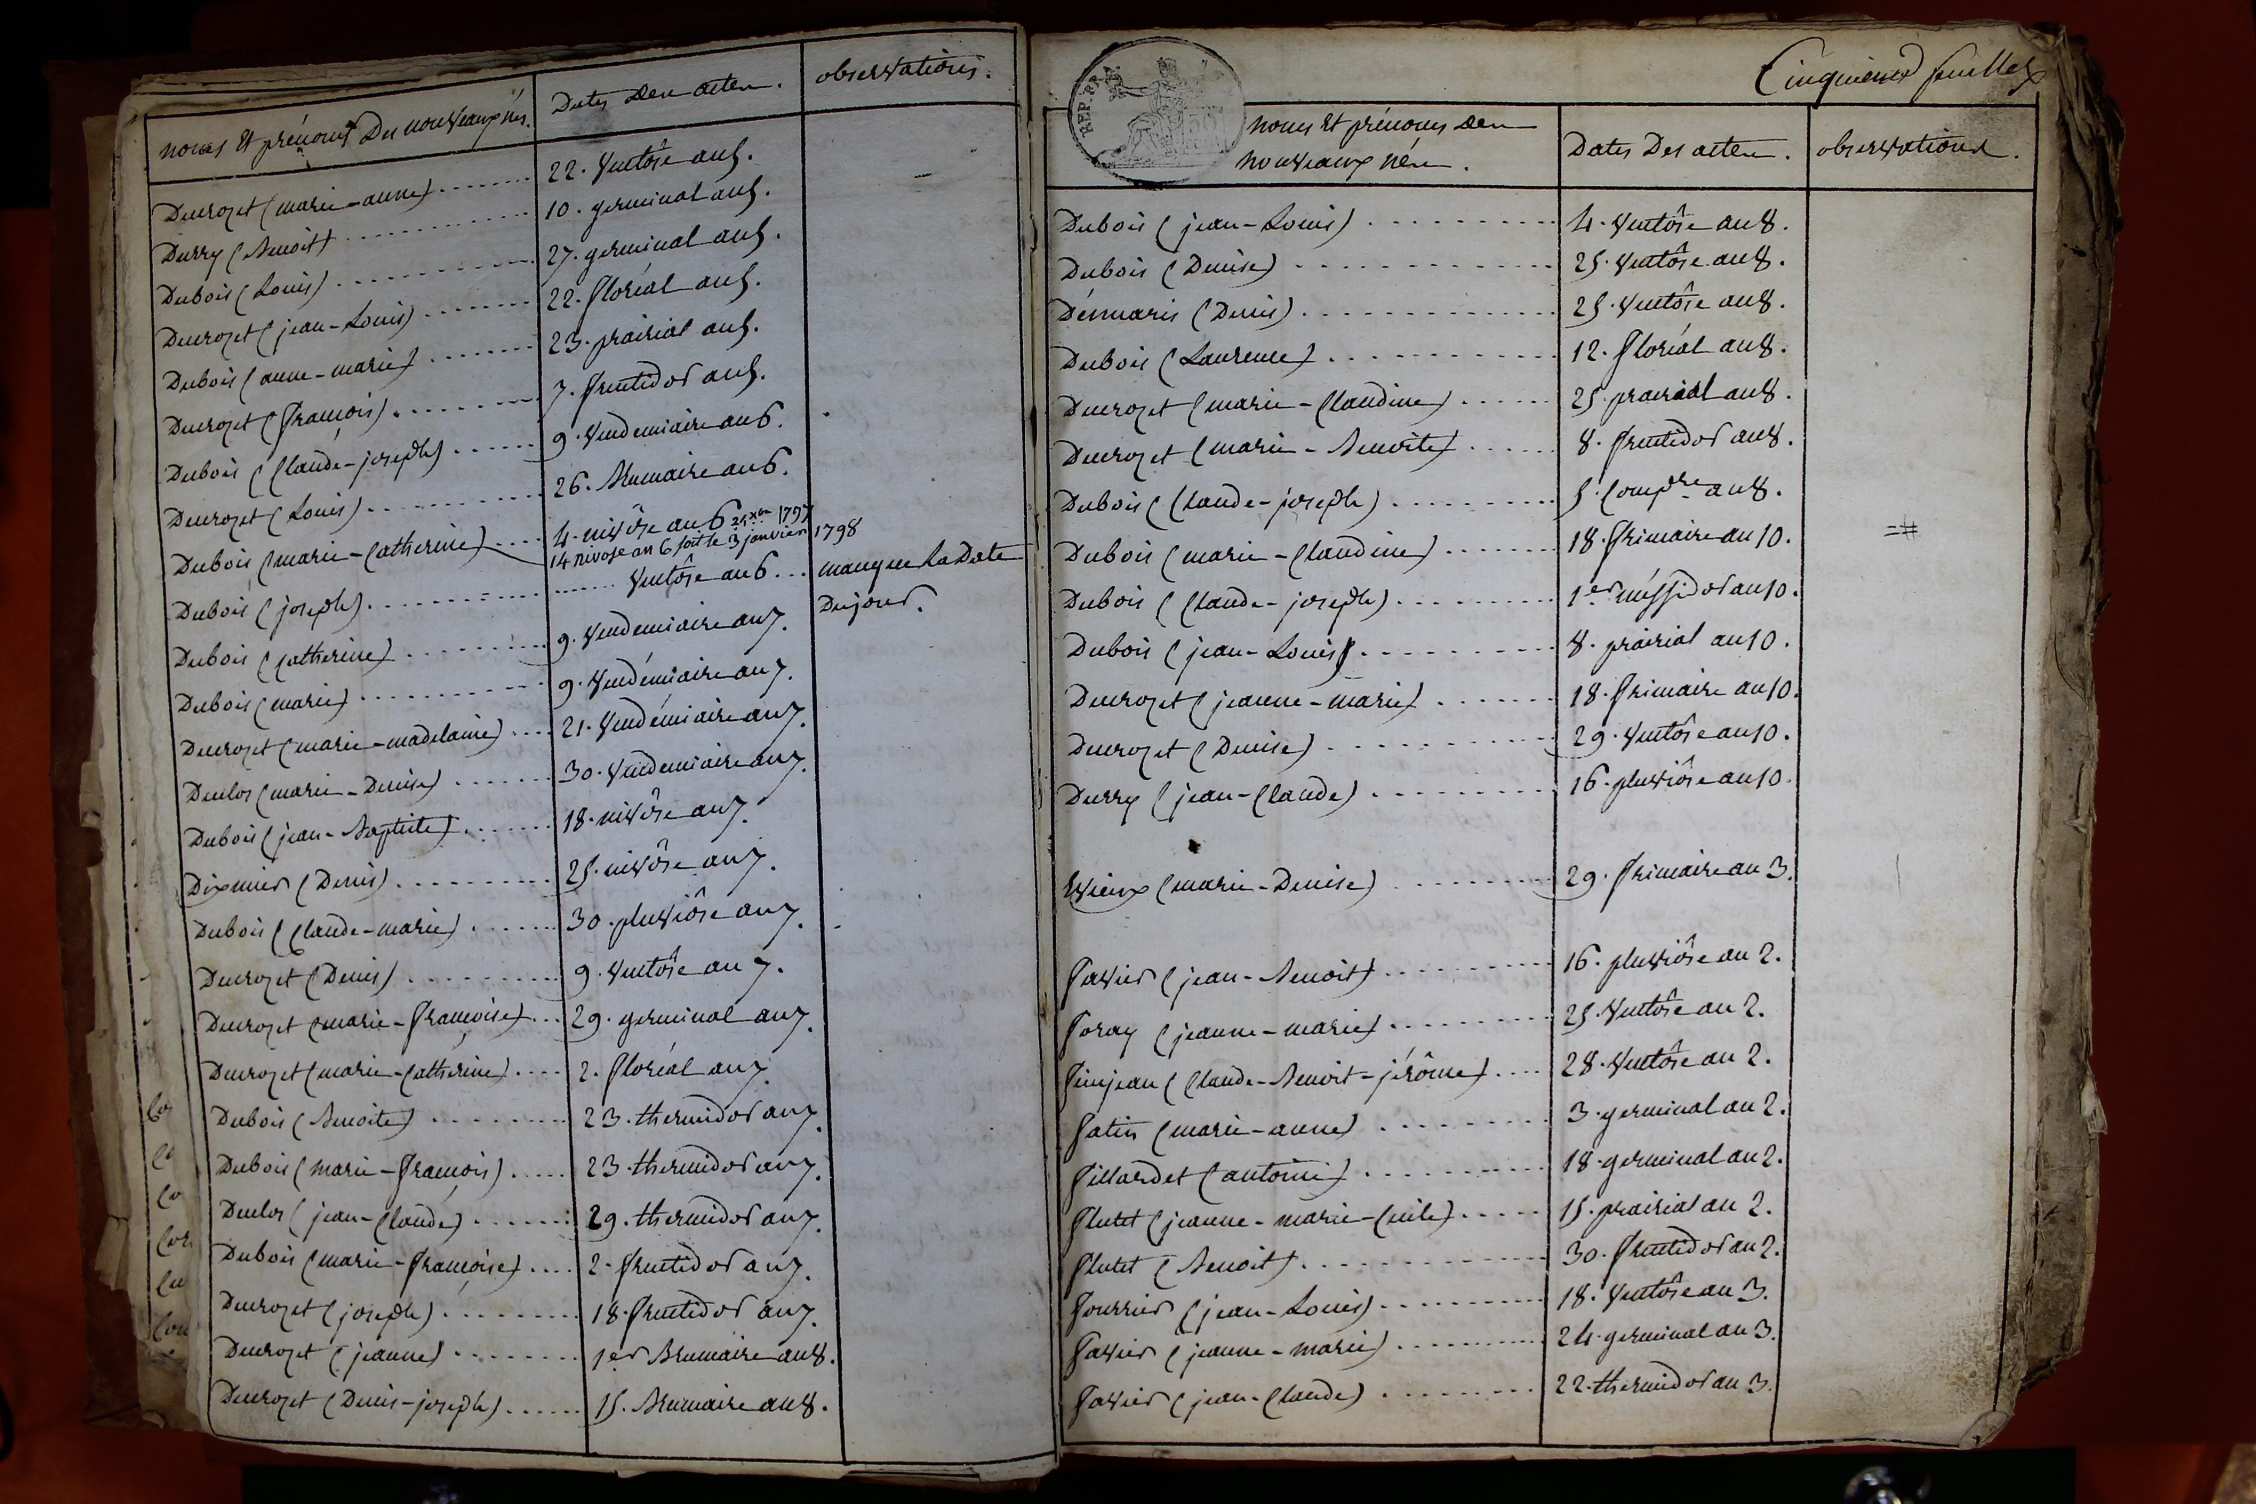 noms Et prénoms Des nouveaux nés. Dates Des actes. observations.
Ducrozet (marie-anne) ....... 22. Ventôse an 5.
Durry (Benoit) ....... 10. germinal an 5.
Dubois (Louis) ....... 27. germinal an 5.
Ducrozet (jean-Louis) ....... 22. floréal an 5.
Dubois (anne-marie) ....... 23. prairial an 5.
Ducrozet (françois) ....... 7. fructidor an 5.
Dubois (Claude-joseph) ....... 9. Vendemiaire an 6.
Ducrozet (Louis) ....... 26. Brumaire an 6.
Dubois (marie-Catherine) .... 4. nivôse an 6 25 Xbre 1797
14 nivose an 6 soit le 3 janvier 1798
Dubois (joseph) ....... Ventôse an 6 ... manque La Date
Du jour.
Dubois (Catherine) ....... 9. Vendemiaire an 7.
Dubois (marie) ....... 9. Vendémiaire an 7.
Ducrozet (marie-madelaine) .... 21. Vendémiaire an 7.
Duclos (marie-Denise) ....... 30. Vendemiaire an 7.
Dubois (jean-Baptiste) ....... 18. nivôse an 7.
Dixmier (Denis) ....... 25. nivôse an 7.
Dubois (Claude-marie) ....... 30. pluviôse an 7.
Ducrozet (Denis) ....... 9. Ventôse an 7.
Ducrozet (marie-françoise) ... 29. germinal an 7.
Ducrozet (marie-Cathérine) .... 2. floréal an 7.
Dubois (Benoite) ....... 23. thermidor an 7.
Dubois (marie-françois) ..... 23. thermidor an 7.
Duclos (jean-Claude) ....... 29. thermidor an 7.
Dubois (marie-françoise) .... 2. fructidor an 7.
Ducrozet (joseph) ....... 18. fructidor an 7.
Ducrozet (jeanne) ....... 1er Brumaire an 8.
Ducrozet (Denis-joseph) ...... 15. Brumaire an 8.
Cinquieme feuillet
REP. FRA.
noms Et prénoms Des
nouveaux nés. Dates Des actes. observations.
Dubois (jean-Louis) ....... 4. Ventôse an 8.
Dubois (Denise) ....... 25. Ventôse an 8.
Désmaris (Denis) ....... 25. Ventôse an 8.
Dubois (Laurence) ....... 12. floréal an 8.
Ducrozet (marie-Claudine) ...... 25. prairial an 8.
Ducrozet (marie-Benoite) ...... 8. fructidor an 8.
Dubois (Claude-joseph) ....... 5. Compre an 8.
Dubois (marie-Claudine) ....... 18. frimaire an 10. =#
Dubois (Claude-joseph) ....... 1er méssidor an 10.
Dubois (jean-Louis) ....... 8. prairial an 10.
Ducrozet (jeanne-marie) ....... 18. frimaire an 10.
Ducrozet (Denise) ....... 29. Ventôse an 10.
Durry (jean-Claude) ....... 16. pluviôse an 10.
Evieux (marie-Denise) ....... 29. frimaire an 3.
favier (jean-Benoit) ....... 16. pluviôse an 2.
foray (jeanne-marie) ....... 25. Ventôse an 2.
finjean (Claude-Benoit-jérôme) .... 28. Ventôse an 2.
fatin (marie-anne) ....... 3. germinal an 2.
fillardet (antoine) ....... 18. germinal an 2.
flutet (jeanne-marie-Cécile) ..... 15. prairial an 2.
flutet (Benoit) ....... 30. fructidor an 2.
fourrier (jean-Louis) ....... 18. Ventôse an 3.
favier (jeanne-marie) ....... 24. germinal an 3.
favier (jean-Claude) ....... 22. thermidor an 3.